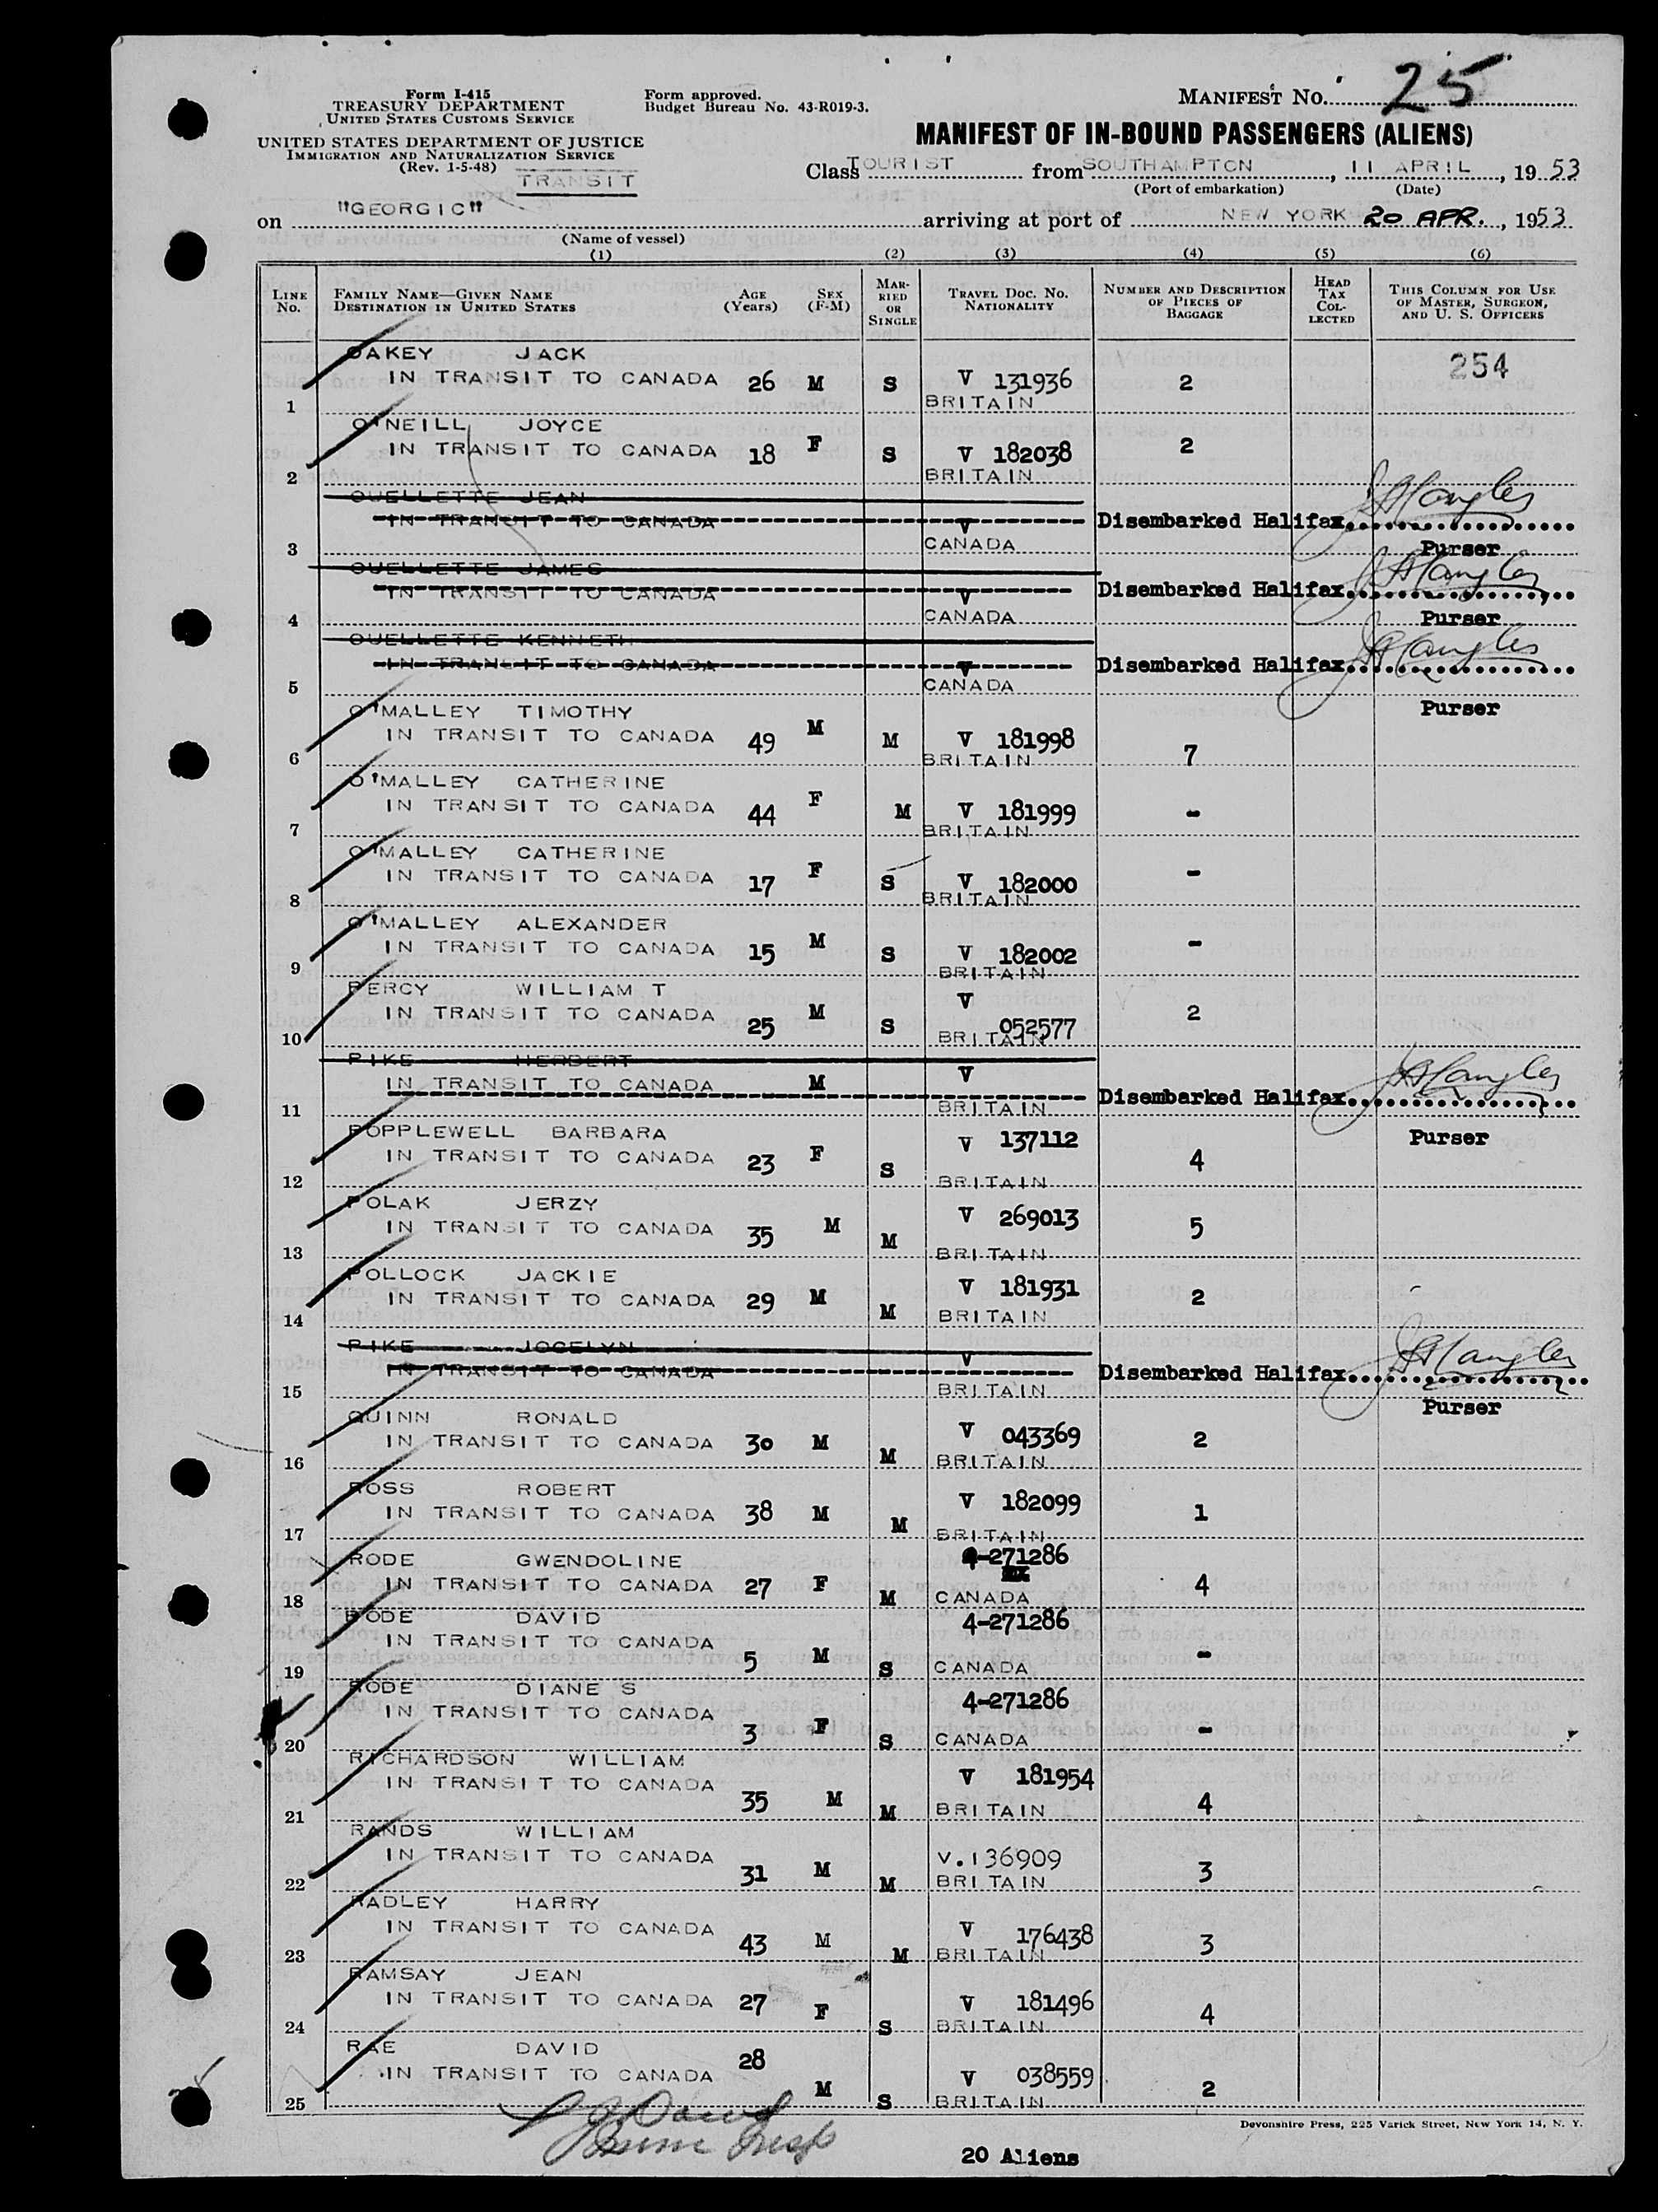 25
Form I-415
TREASURY DEPARTMENT
UNITED STATES CUSTOMS SERVICE
Form approved.
Budget Bureau No. 43-R019-3.
MANIFEST NO.
UNITED STATES DEPARTMENT OF JUSTICE
IMMIGRATION AND NATURALIZATION SERVICE
(Rev. 1-5-48)
TRANSIT
MANIFEST OF IN-BOUND PASSENGERS (ALIENS)
Class TOURIST from SOUTHAMPTON, 11 APRIL, 1953
(Port of embarkation) (Date)
on "GEORGIC" arriving at port of NEW YORK 20 APR., 1953
(Name of vessel)
(1) (2) (3) (4) (5) (6)
LINE NO. FAMILY NAME—GIVEN NAME DESTINATION IN UNITED STATES AGE (YEARS) SEX (F-M) MARRIED OR SINGLE TRAVEL DOC. NO. NATIONALITY NUMBER AND DESCRIPTION OF PIECES OF BAGGAGE HEAD TAX COLLECTED THIS COLUMN FOR USE OF MASTER, SURGEON, AND U. S. OFFICERS
OAKEY JACK 254
IN TRANSIT TO CANADA 26 M S V 131936 2
1 BRITAIN
O'NEILL JOYCE
IN TRANSIT TO CANADA 18 F S V 182038 2
2 BRITAIN
OUELLETTE JEAN
IN TRANSIT TO CANADA V Disembarked Halifax
3 CANADA Purser
OUELLETTE JAMES
IN TRANSIT TO CANADA V Disembarked Halifax
4 CANADA Purser
OUELLETTE KENNETH
IN TRANSIT TO CANADA V Disembarked Halifax
5 CANADA Purser
O'MALLEY TIMOTHY
IN TRANSIT TO CANADA 49 M M V 181998 7
6 BRITAIN
O'MALLEY CATHERINE
IN TRANSIT TO CANADA 44 F M V 181999 -
7 BRITAIN
O'MALLEY CATHERINE
IN TRANSIT TO CANADA 17 F S V 182000 -
8 BRITAIN
O'MALLEY ALEXANDER
IN TRANSIT TO CANADA 15 M S V 182002 -
9 BRITAIN
PERCY WILLIAM T
IN TRANSIT TO CANADA 25 M S V 052577 2
10 BRITAIN
PIKE HERBERT
IN TRANSIT TO CANADA M V Disembarked Halifax
11 BRITAIN Purser
POPPLEWELL BARBARA
IN TRANSIT TO CANADA 23 F S V 137112 4
12 BRITAIN
POLAK JERZY
IN TRANSIT TO CANADA 35 M M V 269013 5
13 BRITAIN
POLLOCK JACKIE
IN TRANSIT TO CANADA 29 M M V 181931 2
14 BRITAIN
PIKE JOCELYN
IN TRANSIT TO CANADA V Disembarked Halifax
15 BRITAIN Purser
QUINN RONALD
IN TRANSIT TO CANADA 30 M M V 043369 2
16 BRITAIN
ROSS ROBERT
IN TRANSIT TO CANADA 38 M M V 182099 1
17 BRITAIN
RODE GWENDOLINE 4-271286
IN TRANSIT TO CANADA 27 F M 4
18 CANADA
RODE DAVID 4-271286
IN TRANSIT TO CANADA 5 M S -
19 CANADA
RODE DIANE S 4-271286
IN TRANSIT TO CANADA 3 F S -
20 CANADA
RICHARDSON WILLIAM
IN TRANSIT TO CANADA 35 M M V 181954 4
21 BRITAIN
RANDS WILLIAM
IN TRANSIT TO CANADA 31 M M V.136909 3
22 BRITAIN
RADLEY HARRY
IN TRANSIT TO CANADA 43 M M V 176438 3
23 BRITAIN
RAMSAY JEAN
IN TRANSIT TO CANADA 27 F S V 181496 4
24 BRITAIN
RAE DAVID 28
IN TRANSIT TO CANADA M S V 038559 2
25 BRITAIN
Devonshire Press, 225 Varick Street, New York 14, N. Y.
20 Aliens